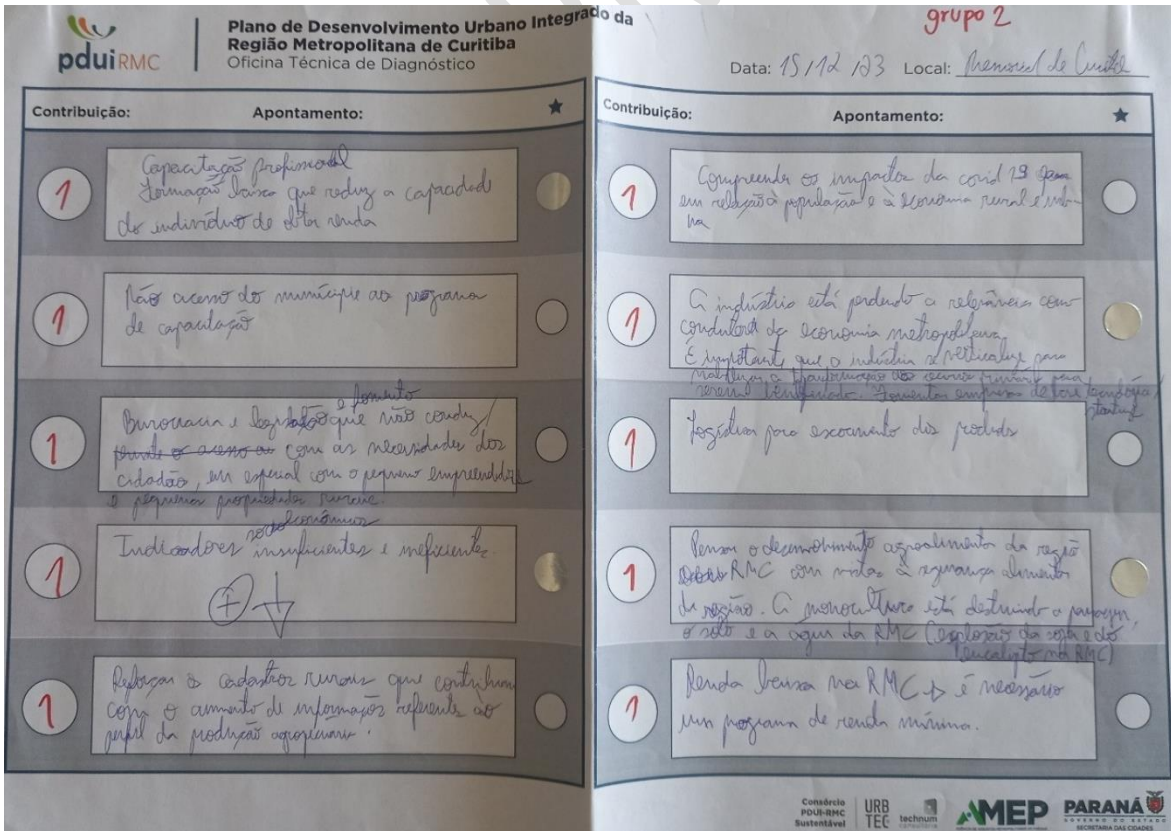 pdui RMC
Plano de Desenvolvimento Urbano Integrado da
Região Metropolitana de Curitiba
Oficina Técnica de Diagnóstico
grupo 2
Data: 15/12/23 Local: Memorial de Curitiba
Contribuição: Apontamento:
1
Capacitação profissional
Formação baixa que reduz a capacidade
do indivíduo de obter renda
1
Não acesso do município ao programa
de capacitação
1
e fomento
Burocracia e legislação que não conduz/
permite o acesso ao com as necessidades dos
cidadão, em especial com o pequeno empreendedor
e pequenas propriedades rurais.
1
socioeconômicos
Indicadores insuficientes e ineficientes
1
Reforçar os cadastros rurais que contribuem
com o aumento de informações referente ao
perfil da produção agropecuária.
Contribuição: Apontamento:
1
Compreender os impactos da covid 19
em relação à população e à economia rural e urba-
na
1
A indústria está perdendo a relevância como
condutora da economia metropolitana
É importante que a indústria se verticalize para
a transformação
Fomentar empresas de base
startup
1
Logística para escoamento dos produtos
1
Pensar o desenvolvimento agroalimentar da região
RMC com vistas à segurança alimentar
da região. A monocultura está destruindo a paisagem,
o solo e a água da RMC (explosão da soja e do
eucalipto na RMC)
1
Renda baixa na RMC → é necessário
um programa de renda mínima.
Consórcio
PDUI-RMC
Sustentável
URB
TEC
technum
consultoria
AMEP
PARANÁ
GOVERNO DO ESTADO
SECRETARIA DAS CIDADES